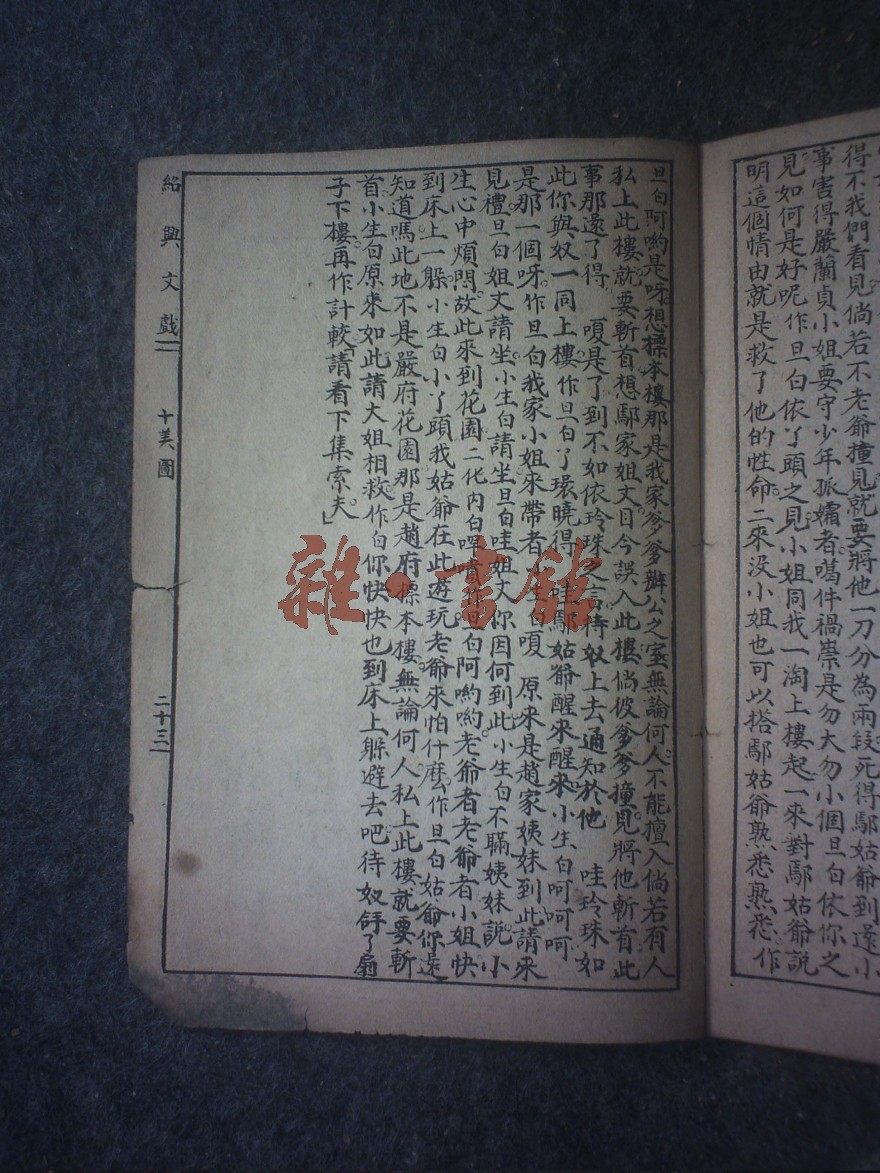 得不我們看見倘若不老爺撞見就要將他一刀分為兩段死得鄢姑爺到還小
事害得嚴蘭貞小姐要守少年孤孀者噶件禍祟是勿大勿小個旦白依你之
見如何是好呢作旦白依丫頭之見小姐同我一淘上樓起一來對鄢姑爺說
明這個情由就是救了他的性命二來沒小姐也可以搭鄢姑爺熟悉熟悉作
旦白阿喲是呀想標本樓那是我家爹爹辦公之室無論何人不能擅入倘若有人
私上此樓就要斬首想鄢家姐丈目今誤入此樓倘彼爹爹撞見將他斬首此
事那還了得 嗄是了到不如依玲珠之言待奴上去通知於他 哇玲珠如
此你與奴一同上樓作旦白了環曉得 哇鄢姑爺醒來醒來小生白呵呵呵
是那一個呀作旦白我家小姐來帶者小生白嗄 原來是趙家姨妹到此請來
見禮旦白姐丈請坐小生白請坐旦白哇姐丈你因何到此小生白不瞞姨妹說小
生心中煩悶故此來到花園二化內白啐作旦白阿喲喲老爺者老爺者小姐快
到床上一躲小生白小丫頭我姑爺在此遊玩老爺來怕什麼作旦白姑爺你還
知道嗎此地不是嚴府花園那是趙府標本樓無論何人私上此樓就要斬
首小生白原來如此請大姐相救作白你快快也到床上躲避去吧待奴拏了扇
子下樓再作計較「請看下集索夫」
紹興文戲二
十美圖
二十三
雜·書館